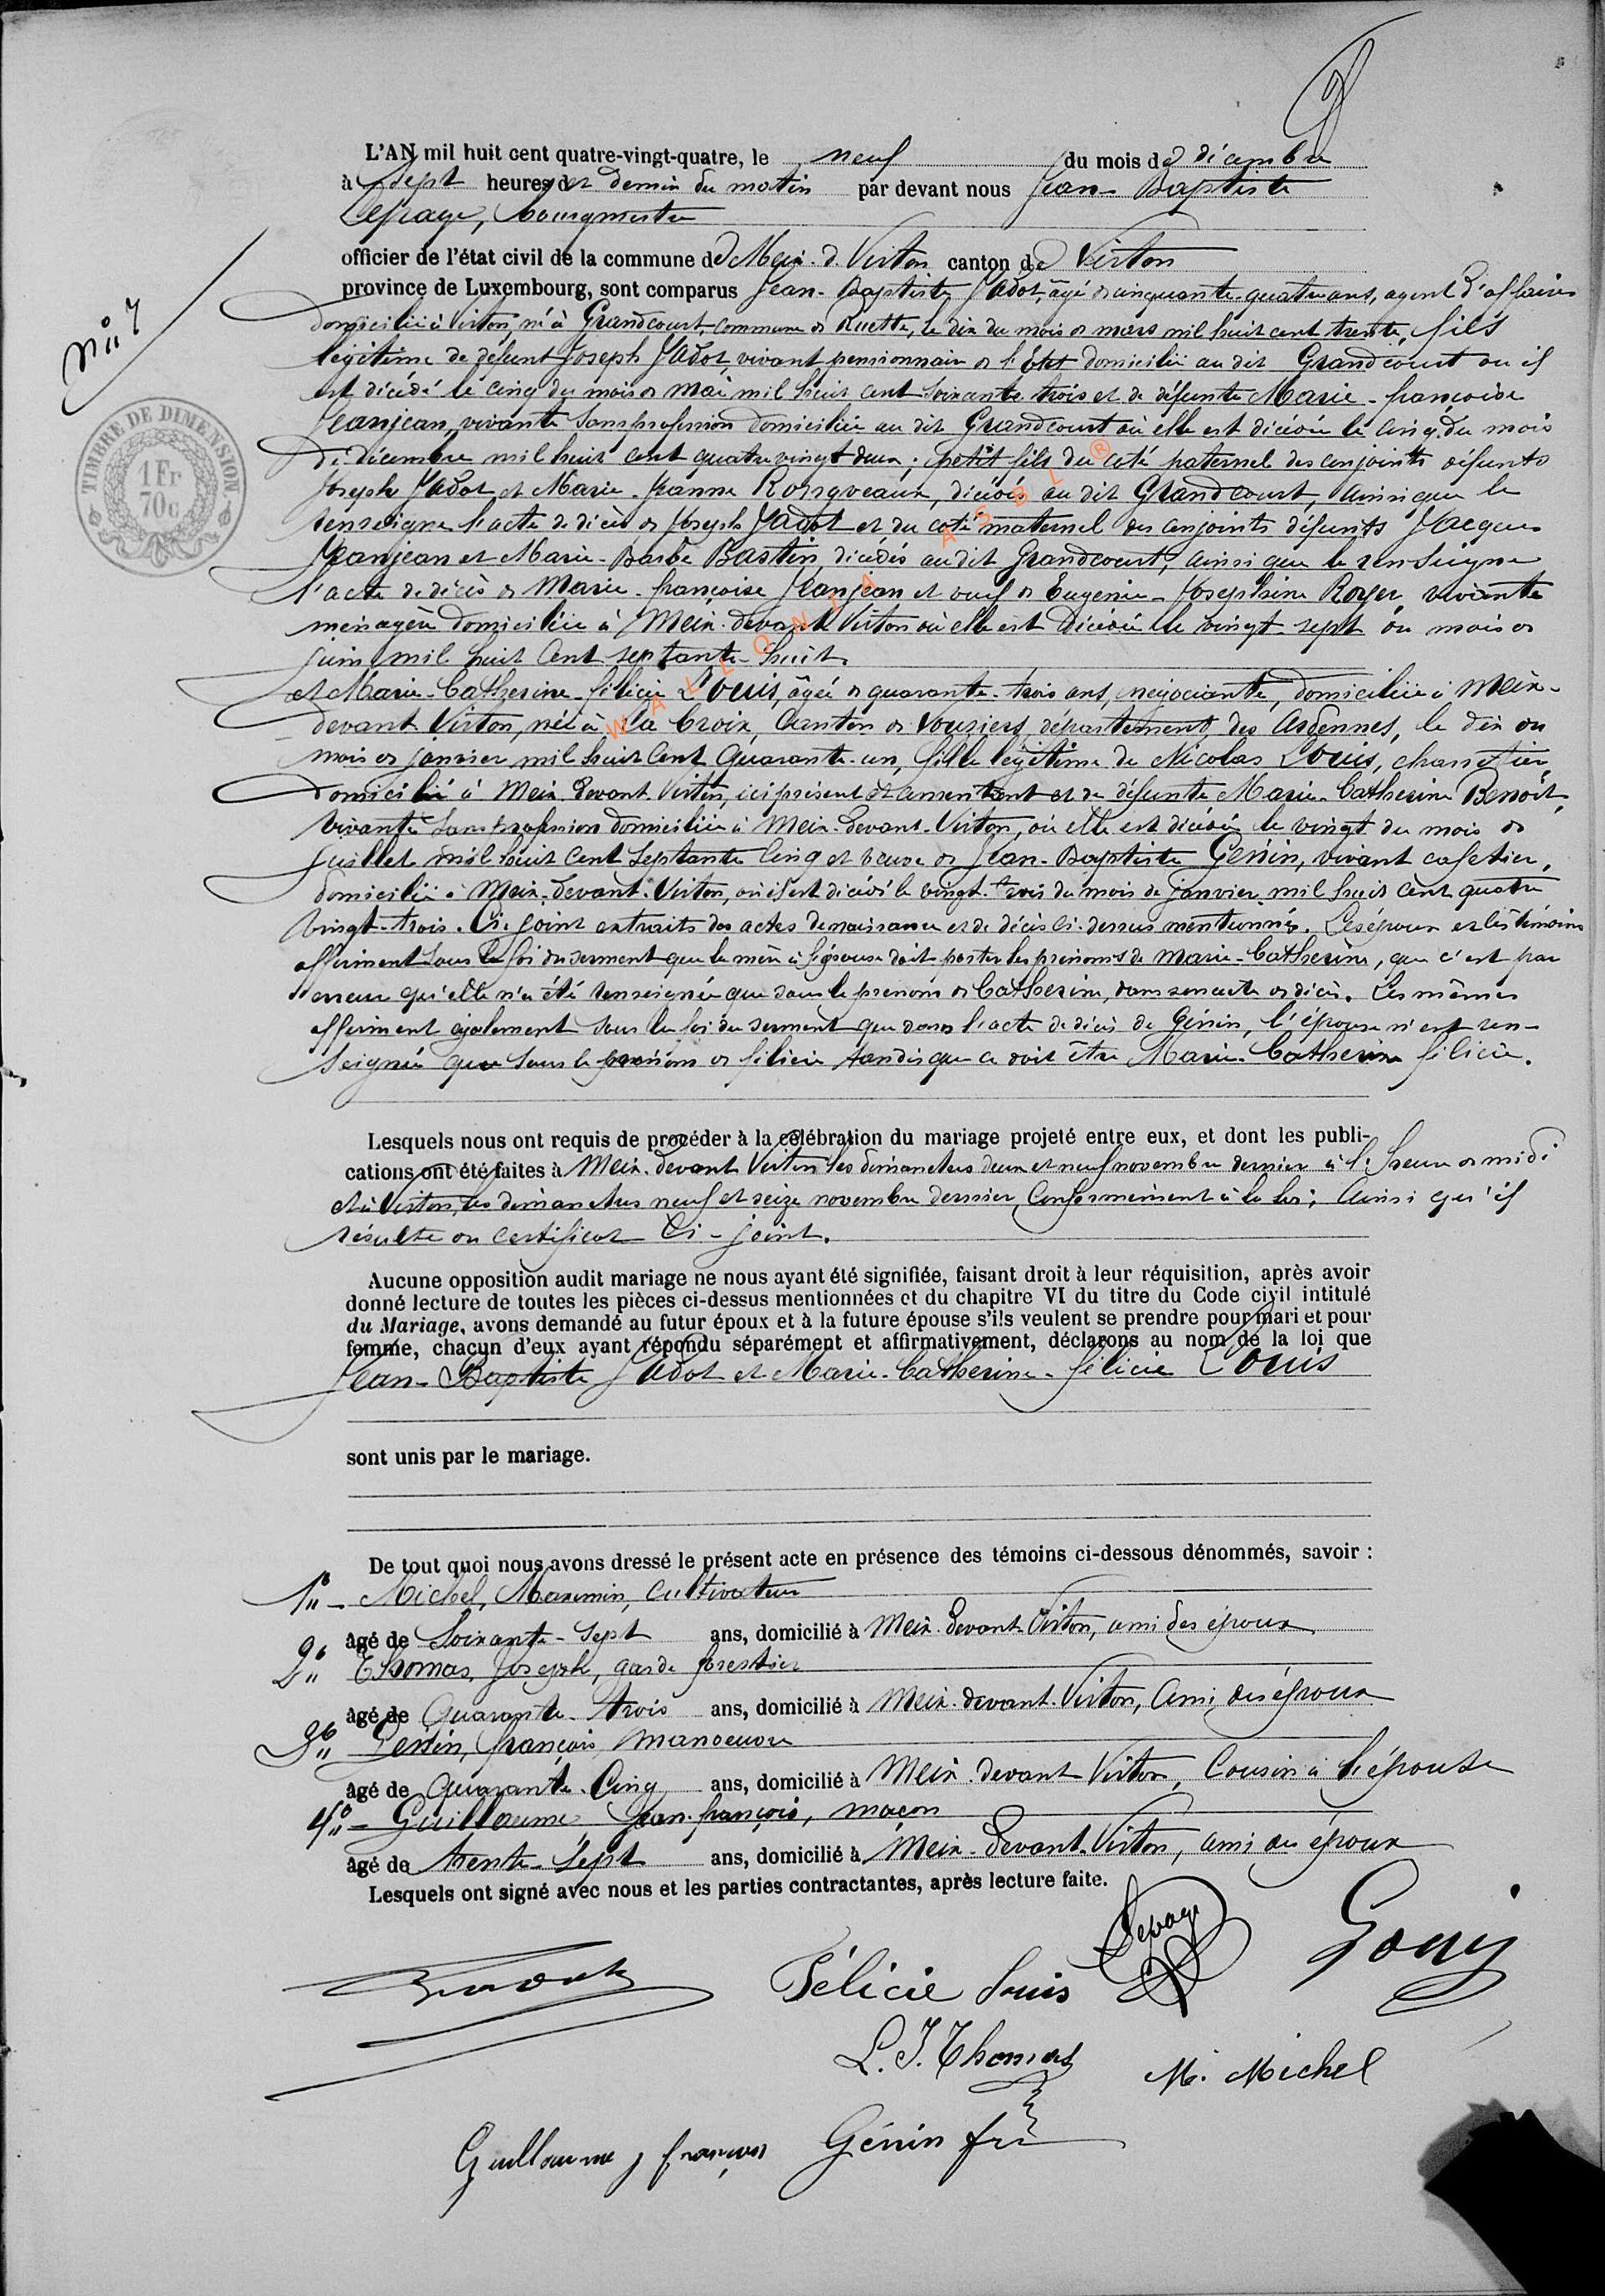 L'AN mil huit cent quatre-vingt-quatre, le neuf du mois de décembre
à sept heures et demie du matin par devant nous Jean-Baptiste
Lepage, bourgmestre
officier de l'état civil de la commune de Meix-d.-Virton canton de Virton
province de Luxembourg, sont comparus Jean-Baptiste Jadot, âgé de cinquante-quatre ans, agent d'affaires
N° 7
domicilié à Virton, né à Grandcourt, commune de Ruette, le dix du mois de mars mil huit cent trente, fils
légitime de défunt Joseph Jadot, vivant pensionnaire de l'Etat domicilié au dit Grandcourt où il
est décédé le cinq du mois de mai mil huit cent soixante trois et de défunte Marie-françoise
Jeanjean, vivante sans profession domiciliée au dit Grandcourt où elle est décédée le cinq du mois
de décembre mil huit cent quatre vingt deux; petit fils du coté paternel des conjoints défunts
Joseph Jadot et Marie-Jeanne décédés au dit Grandcourt, ainsi que le
renseigne l'acte de décès de Joseph Jadot et du coté maternel des conjoints défunts Jacques
Jeanjean et Marie-Barbe Bastin, décédés au dit Grandcourt, ainsi que le renseigne
l'acte de décès de Marie-françoise Jeanjean et veuf de Eugénie-Joséphine Royer, vivante
ménagère domiciliée à Meix-devant Virton où elle est décédée le vingt-sept du mois de
juin mil huit cent septante-huit.
et Marie-Catherine-félicie Louis, âgée de quarante-trois ans, négociante, domiciliée à Meix-
devant Virton, née à la Croix, Canton de Vouziers, département des Ardennes, le dix du
mois de janvier mil huit cent quarante-un, fille légitime de Nicolas Louis, charretier,
domicilié à Meix devant Virton, ici présent et consentant et de défunte Marie-Catherine Benoit,
vivante sans profession domiciliée à Meix-devant-Virton, où elle est décédée le vingt du mois de
juillet mil huit cent septante cinq et veuve de Jean-Baptiste Génin, vivant cafetier,
domicilié à Meix-devant-Virton, où il est décédé le vingt-trois du mois de janvier mil huit cent quatre
vingt-trois. Ci-joint extraits des actes de naissance et de décès ci-dessus mentionnés. Les époux et les témoins
affirment sous la foi du serment que la mère à l'épouse doit porter les prénoms de Marie-Catherine, que c'est par
erreur qu'elle n'a été renseignée que sous le prénom de Catherine, dans son acte de décès. Les mêmes
affirment également sous la foi du serment que dans l'acte de décès de Génin, l'épouse n'est ren-
seignée que sous le prénom de félicie tandis que ce doit être Marie-Catherine félicie.
Lesquels nous ont requis de procéder à la célébration du mariage projeté entre eux, et dont les publi-
cations ont été faites à Meix-devant Virton les dimanches deux et neuf novembre dernier à l'heure de midi
et à Virton, les dimanches neuf et seize novembre dernier, conformément à la loi; ainsi qu'il
résulte du certificat ci-joint.
Aucune opposition audit mariage ne nous ayant été signifiée, faisant droit à leur réquisition, après avoir
donné lecture de toutes les pièces ci-dessus mentionnées et du chapitre VI du titre du Code civil intitulé
du Mariage, avons demandé au futur époux et à la future épouse s'ils veulent se prendre pour mari et pour
femme, chacun d'eux ayant répondu séparément et affirmativement, déclarons au nom de la loi que
Jean-Baptiste Jadot et Marie-Catherine-félicie Louis
sont unis par le mariage.
De tout quoi nous avons dressé le présent acte en présence des témoins ci-dessous dénommés, savoir :
1° - Michel, Maximin, cultivateur
âgé de soixante-sept ans, domicilié à Meix-devant-Virton, ami des époux
2° Thomas, Joseph, garde forestier
âgé de quarante-trois ans, domicilié à Meix-devant-Virton, ami des époux
3° Génin, françois, manoeuvre
âgé de quarante-cinq ans, domicilié à Meix-devant Virton, cousin à l'épouse
4° - Guillaume Jean-françois, maçon
âgé de trente-sept ans, domicilié à Meix-devant-Virton, ami des époux
Lesquels ont signé avec nous et les parties contractantes, après lecture faite.
TIMBRE DE DIMENSION
1 Fr
70c
Lepage
Jadot
Félicie Louis
Louis
L. J. Thomas
M. Michel
Guillaume j françois
Génin frs
WALLONIA ASBL ®